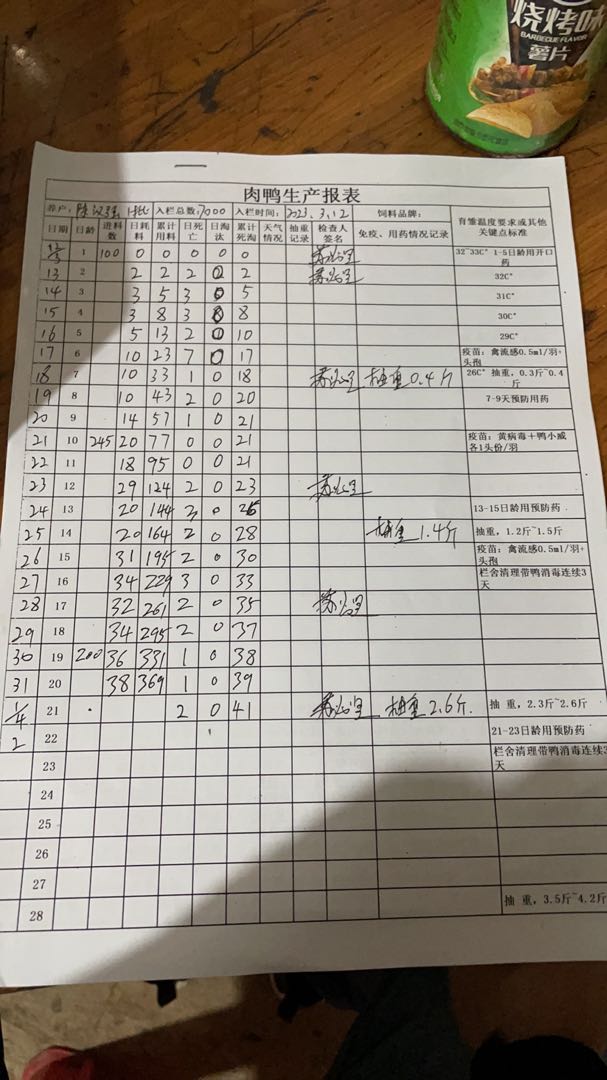 烧烤味
BARBECUE FLAVOR
薯片
肉鸭生产报表
养户: 入栏总数:7000 入栏时间: 2023.3.12 饲料品牌: 育雏温度要求或其他关键点标准
日期 日龄 进料数 日耗料 累计用料 日死亡 日淘汰 累计死淘 天气情况 抽重记录 检查人签名 免疫、用药情况记录
12/3 1 100 0 0 0 0 0 32~33C° 1-5日龄用开口药
13 2 2 2 2 0 2 32C°
14 3 3 5 3 0 5 31C°
15 4 3 8 3 0 8 30C°
16 5 5 13 2 0 10 29C°
17 6 10 23 7 0 17 疫苗: 禽流感0.5ml/羽+头孢
18 7 10 33 1 0 18 抽重0.4斤 26C° 抽重, 0.3斤~0.4斤
19 8 10 43 2 0 20 7-9天预防用药
20 9 14 57 1 0 21
21 10 245 20 77 0 0 21 疫苗: 黄病毒+鸭小威各1头份/羽
22 11 18 95 0 0 21
23 12 29 124 2 0 23
24 13 20 144 3 0 26 13-15日龄用预防药
25 14 20 164 2 0 28 抽重1.4斤 抽重, 1.2斤~1.5斤
26 15 31 195 2 0 30 疫苗: 禽流感0.5ml/羽+头孢
27 16 34 229 3 0 33 栏舍清理带鸭消毒连续3天
28 17 32 261 2 0 35
29 18 34 295 2 0 37
30 19 200 36 331 1 0 38
31 20 38 369 1 0 39
1/4 21 2 0 41 抽重2.6斤. 抽 重, 2.3斤~2.6斤
2 22 21-23日龄用预防药
23 栏舍清理带鸭消毒连续3天
24
25
26
27
28 抽 重, 3.5斤~4.2斤